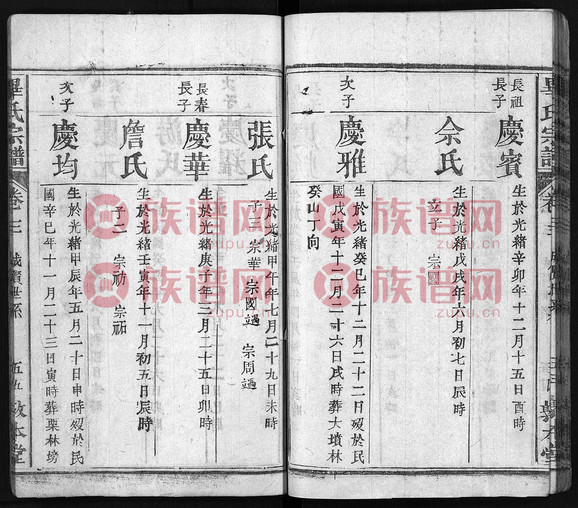 畢氏宗譜
卷三
五五
敦本堂
長祖
長子
慶賓
生於光緒辛卯年十二月十五日酉時
余氏
生於光緒戊戌年六月初七日辰時
立子 宗國
次子
慶雅
生於光緒癸巳年十二月二十二日歿於民
國戊寅年十二月二十六日戌時葬大墳林
癸山丁向
張氏
生於光緒甲午年七月二十九日未時
子 宗華 宗國過 宗周過
長春
長子
慶華
生於光緒庚子年二月二十五日卯時
詹氏
生於光緒壬寅年十一月初五日辰時
子二 宗礽 宗祖
次子
慶均
生於光緒甲辰年五月二十日申時歿於民
國辛巳年十一月二十三日寅時葬栗林塝
畢氏宗譜
卷三
咸賓世系
五五
敦本堂
族谱网
zupu.cn
族谱网
zupu.cn
族谱网
zupu.cn
族谱网
zupu.cn